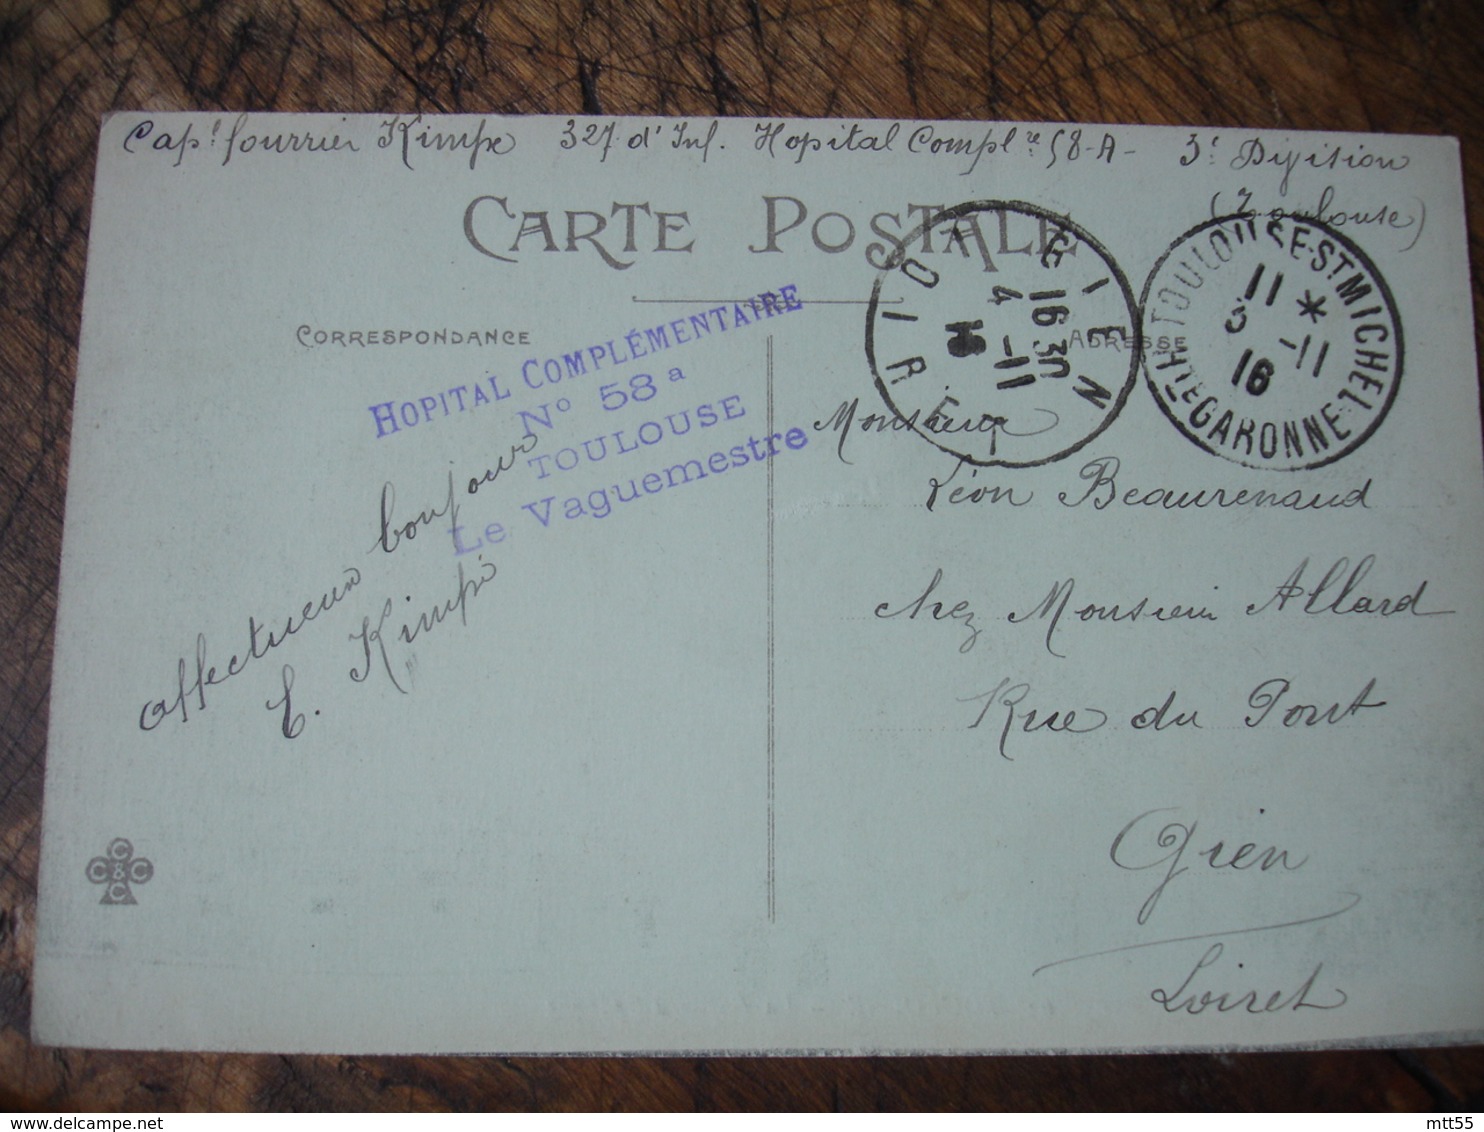 Capl. fourrier Kimpe 327 d'Inf. Hopital Complre 58-A- 3e Division
(Toulouse)
CARTE POSTALE
CORRESPONDANCE
ADRESSE
HOPITAL COMPLÉMENTAIRE
N° 58 a
TOULOUSE
Le Vaguemestre
GIEN
LOIRET
16 30
4 -11
16
TOULOUSE-ST MICHEL
HTE GARONNE
11 *
3 -11
16
affectueux bonjour
E. Kimpe
Monsieur
Léon Beaurenaud
chez Monsieur Allard
Rue du Pont
Gien
Loiret
C C & C C
mtt55